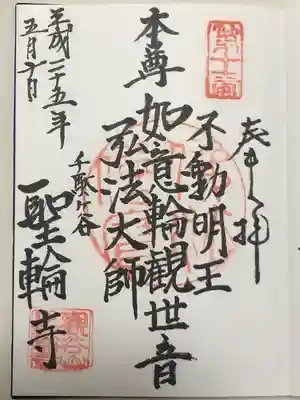 奉拝
不動明王
本尊 如意輪觀世音
弘法大師
千駄ヶ谷
聖輪寺
平成二十五年
五月六日
第十番